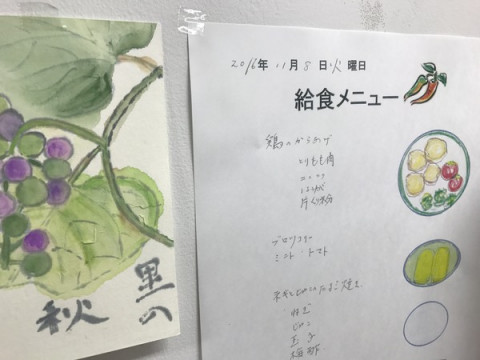 里の
秋
2016年 11月 8日 火曜日
給食メニュー
鶏のからあげ
とりもも肉
ニンニク
片くり粉
ブロッコリー
ミニトマト
ねぎ
じゃこ
玉子